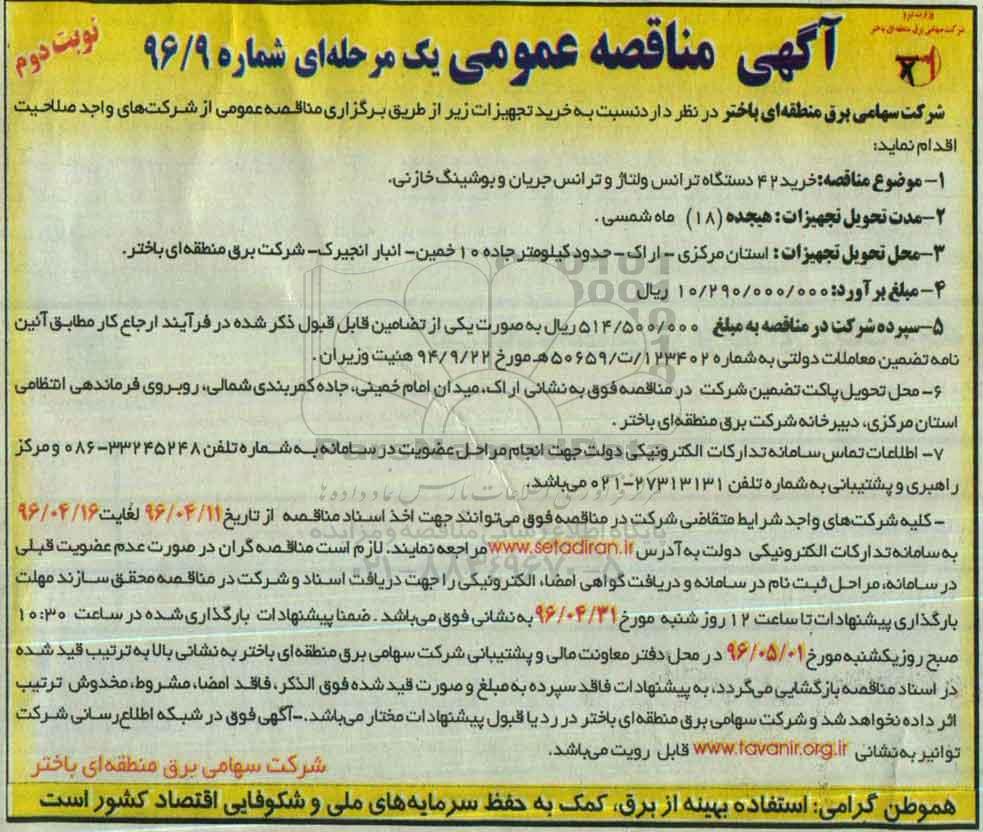 وزارت نیرو
شرکت سهامی برق منطقه‌ای باختر
نوبت دوم
آگهی مناقصه عمومی یک مرحله‌ای شماره ۹۶/۹
شرکت سهامی برق منطقه‌ای باختر در نظر دارد نسبت به خرید تجهیزات زیر از طریق برگزاری مناقصه عمومی از شرکت‌های واجد صلاحیت
اقدام نماید:
۱- موضوع مناقصه: خرید ۴۲ دستگاه ترانس ولتاژ و ترانس جریان و بوشینگ خازنی.
۲- مدت تحویل تجهیزات: هیجده (۱۸) ماه شمسی.
۳- محل تحویل تجهیزات: استان مرکزی - اراک - حدود کیلومتر جاده ۱۰ خمین- انبار انجیرک- شرکت برق منطقه‌ای باختر.
۴- مبلغ برآورد: ۱۰/۲۹۰/۰۰۰/۰۰۰ ریال
۵- سپرده شرکت در مناقصه به مبلغ ۵۱۴/۵۰۰/۰۰۰ ریال به صورت یکی از تضامین قابل قبول ذکر شده در فرآیند ارجاع کار مطابق آئین
نامه تضمین معاملات دولتی به شماره ۱۲۳۴۰۲/ت/۵۰۶۵۹هـ مورخ ۹۴/۹/۲۲ هئیت وزیران.
۶- محل تحویل پاکت تضمین شرکت در مناقصه فوق به نشانی اراک، میدان امام خمینی، جاده کمربندی شمالی، روبروی فرماندهی انتظامی
استان مرکزی، دبیرخانه شرکت برق منطقه‌ای باختر.
۷- اطلاعات تماس سامانه تدارکات الکترونیکی دولت جهت انجام مراحل عضویت در سامانه به شماره تلفن ۳۳۲۴۵۲۴۸-۰۸۶ و مرکز
راهبری و پشتیبانی به شماره تلفن ۲۷۳۱۳۱۳۱-۰۲۱ می‌باشد.
- کلیه شرکت‌های واجد شرایط متقاضی شرکت در مناقصه فوق می‌توانند جهت اخذ اسناد مناقصه از تاریخ ۹۶/۰۴/۱۱ لغایت ۹۶/۰۴/۱۶
به سامانه تدارکات الکترونیکی دولت به آدرس www.setadiran.ir مراجعه نمایند. لازم است مناقصه گران در صورت عدم عضویت قبلی
در سامانه، مراحل ثبت نام در سامانه و دریافت گواهی امضاء الکترونیکی را جهت دریافت اسناد و شرکت در مناقصه محقق سازند مهلت
بارگذاری پیشنهادات تا ساعت ۱۲ روز شنبه مورخ ۹۶/۰۴/۳۱ به نشانی فوق می‌باشد. ضمنا پیشنهادات بارگذاری شده در ساعت ۱۰:۳۰
صبح روز یکشنبه مورخ ۹۶/۰۵/۰۱ در محل دفتر معاونت مالی و پشتیبانی شرکت سهامی برق منطقه‌ای باختر به نشانی بالا به ترتیب قید شده
در اسناد مناقصه بازگشایی می‌گردد، به پیشنهادات فاقد سپرده به مبلغ و صورت قید شده فوق الذکر، فاقد امضاء، مشروط، مخدوش ترتیب
اثر داده نخواهد شد و شرکت سهامی برق منطقه‌ای باختر در رد یا قبول پیشنهادات مختار می‌باشد.-آگهی فوق در شبکه اطلاع رسانی شرکت
توانیر به نشانی www.tavanir.org.ir قابل رویت می‌باشد.
شرکت سهامی برق منطقه‌ای باختر
هموطن گرامی: استفاده بهینه از برق، کمک به حفظ سرمایه‌های ملی و شکوفایی اقتصاد کشور است